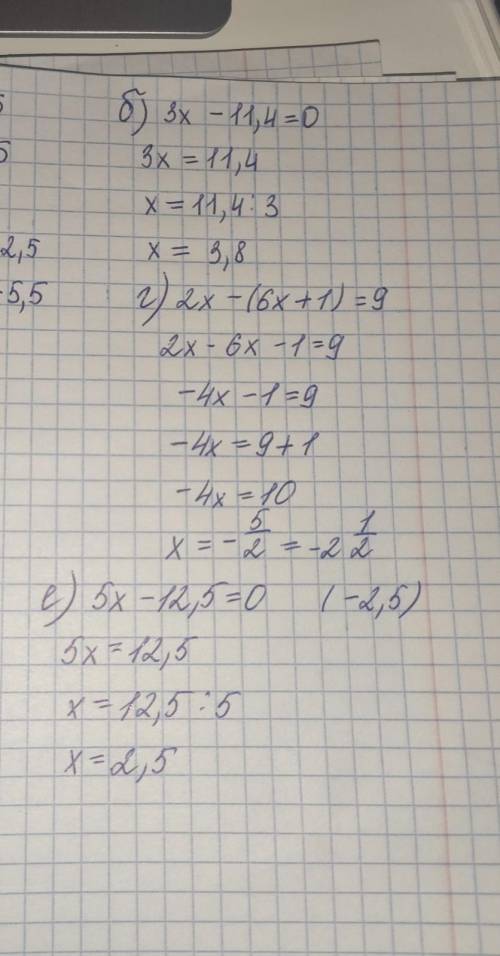 5
5
2,5
-5,5
б) 3x - 11,4 = 0
3x = 11,4
x = 11,4 : 3
x = 3,8
г) 2x - (6x + 1) = 9
2x - 6x - 1 = 9
-4x - 1 = 9
-4x = 9 + 1
-4x = 10
x = - 5/2 = -2 1/2
е) 5x - 12,5 = 0 (-2,5)
5x = 12,5
x = 12,5 : 5
x = 2,5